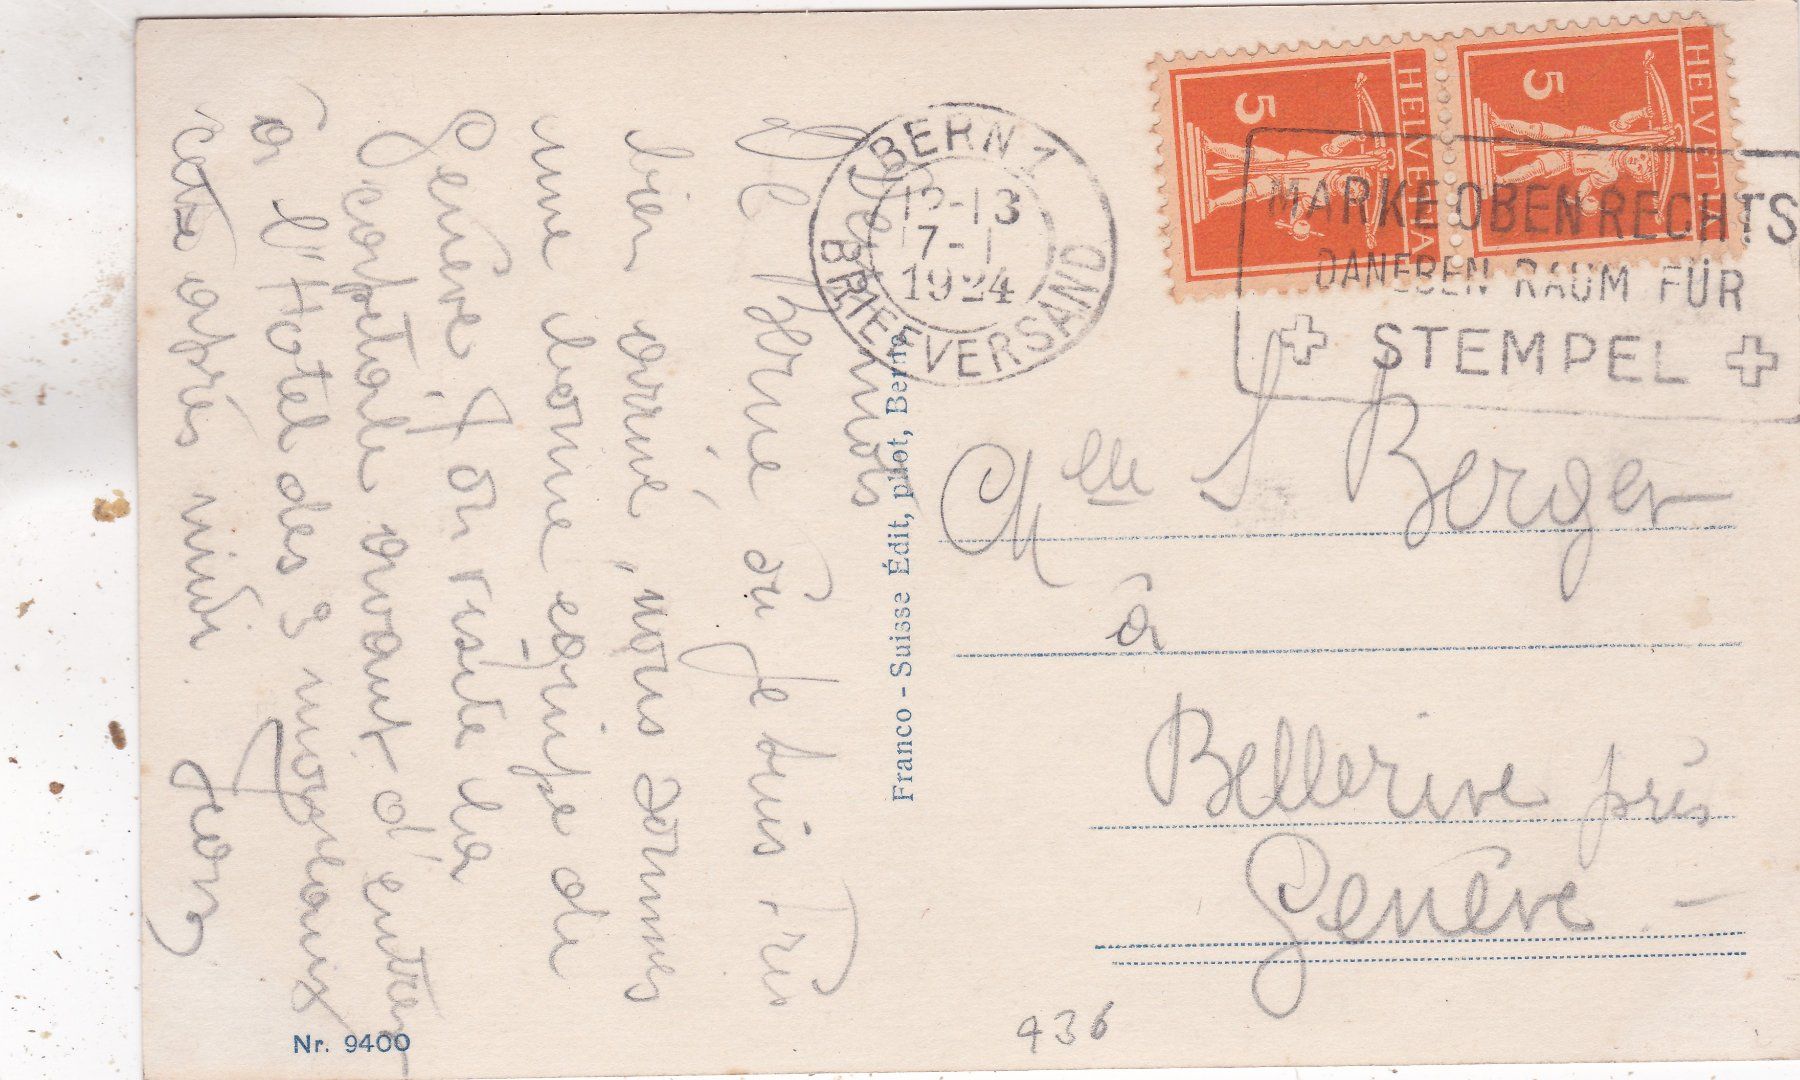 bien arrivé, nous sommes
une bonne équipe de
Genève, on visite la
Capitale avant d'entrer
à l'Hotel des
cette après midi.
de Berne où je suis très
HELVETIA
5
HELVETIA
5
BERN 1
12-13
7-1
1924
BRIEFVERSAND
MARKE OBEN RECHTS
DANEBEN RAUM FÜR
STEMPEL
Mlle S Berger
à
Bellerive près
Genève -
Franco-Suisse Édit, phot, Berne
936
Nr. 9400